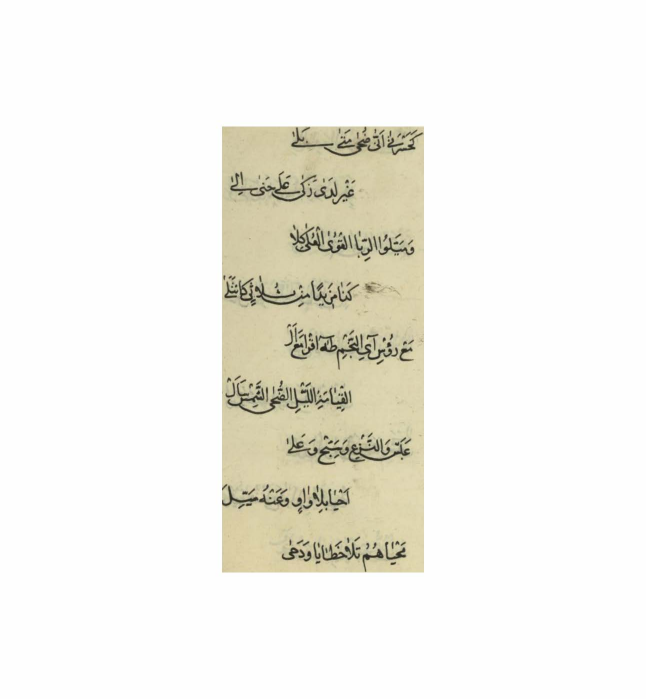 كَحَسْرَتٰى اَنّٰى ضُحٰى مَتٰى بَلٰى
غَيْرَ لَدٰى زَكٰى عَلٰى حَتّٰى اِلٰى
وَمَيَّلُوا الرِّبَا الْقُوٰى الْعُلٰى كِلَا
كَذَا مَزِيدًا مِنْ ثُلَاثِيٍّ كَابْتَلٰى
مَعْ رُؤُسِ آيِ النَّجْمِ طٰهٰ اقْرَا مَعَ الْ
الْقِيَامَةِ اللَّيْلِ الضُّحٰى الشَّمْسِ سَاَلْ
عَبَسَ وَالنَّزْعِ وَسَبِّحْ وَعَلٰى
اَحْيَا بِلَا وَاوٍ وَعَنْهُ مَيِّلِ
مَحْيَاهُمُ تَلَا خَطَايَا وَدَحٰى